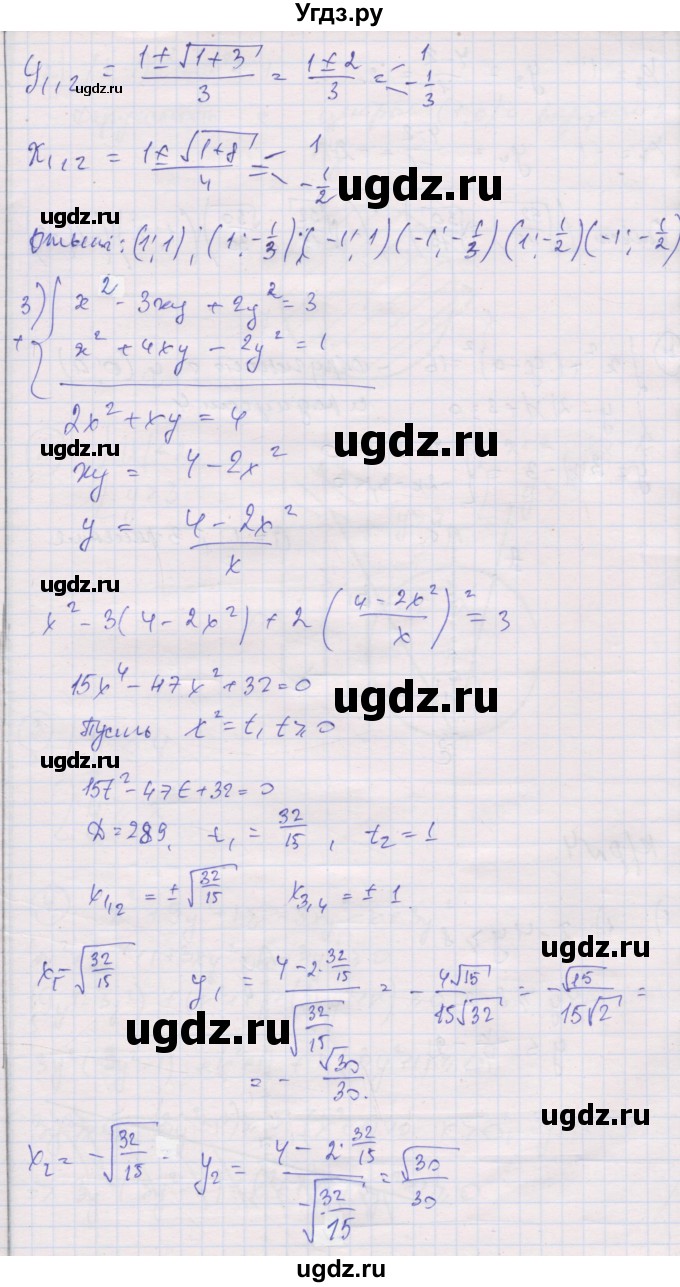 Угдз.ру
y₁,₂ = (1 ± √(1+3))/3 = (1 ± 2)/3 = < 1; -1/3
ugdz.ru
x₁,₂ = (1 ± √(1+8))/4 = < 1; -1/2
ugdz.ru
ugdz.ru
Ответ: (1; 1); (1; -1/3); (-1; 1) (-1; -1/3) (1; -1/2) (-1; -1/2)
3) { x² - 3xy + 2y² = 3
ugdz.ru
+ { x² + 4xy - 2y² = 1
2x² + xy = 4
ugdz.ru
ugdz.ru
xy = 4 - 2x²
y = (4 - 2x²)/x
ugdz.ru
x² - 3(4 - 2x²) + 2((4 - 2x²)/x)² = 3
15x⁴ - 47x² + 32 = 0
ugdz.ru
Пусть x² = t, t ⩾ 0
ugdz.ru
15t² - 47t + 32 = 0
D = 289, t₁ = 32/15, t₂ = 1
x₁,₂ = ± √(32/15) x₃,₄ = ± 1.
ugdz.ru
x₁ = √(32/15) y₁ = (4 - 2·32/15)/√(32/15) = - 4√15/(15√32) = - √15/(15√2) =
ugdz.ru
= - √30/30.
ugdz.ru
x₂ = -√(32/15). y₂ = (4 - 2·32/15)/(-√(32/15)) = √30/30
ugdz.ru